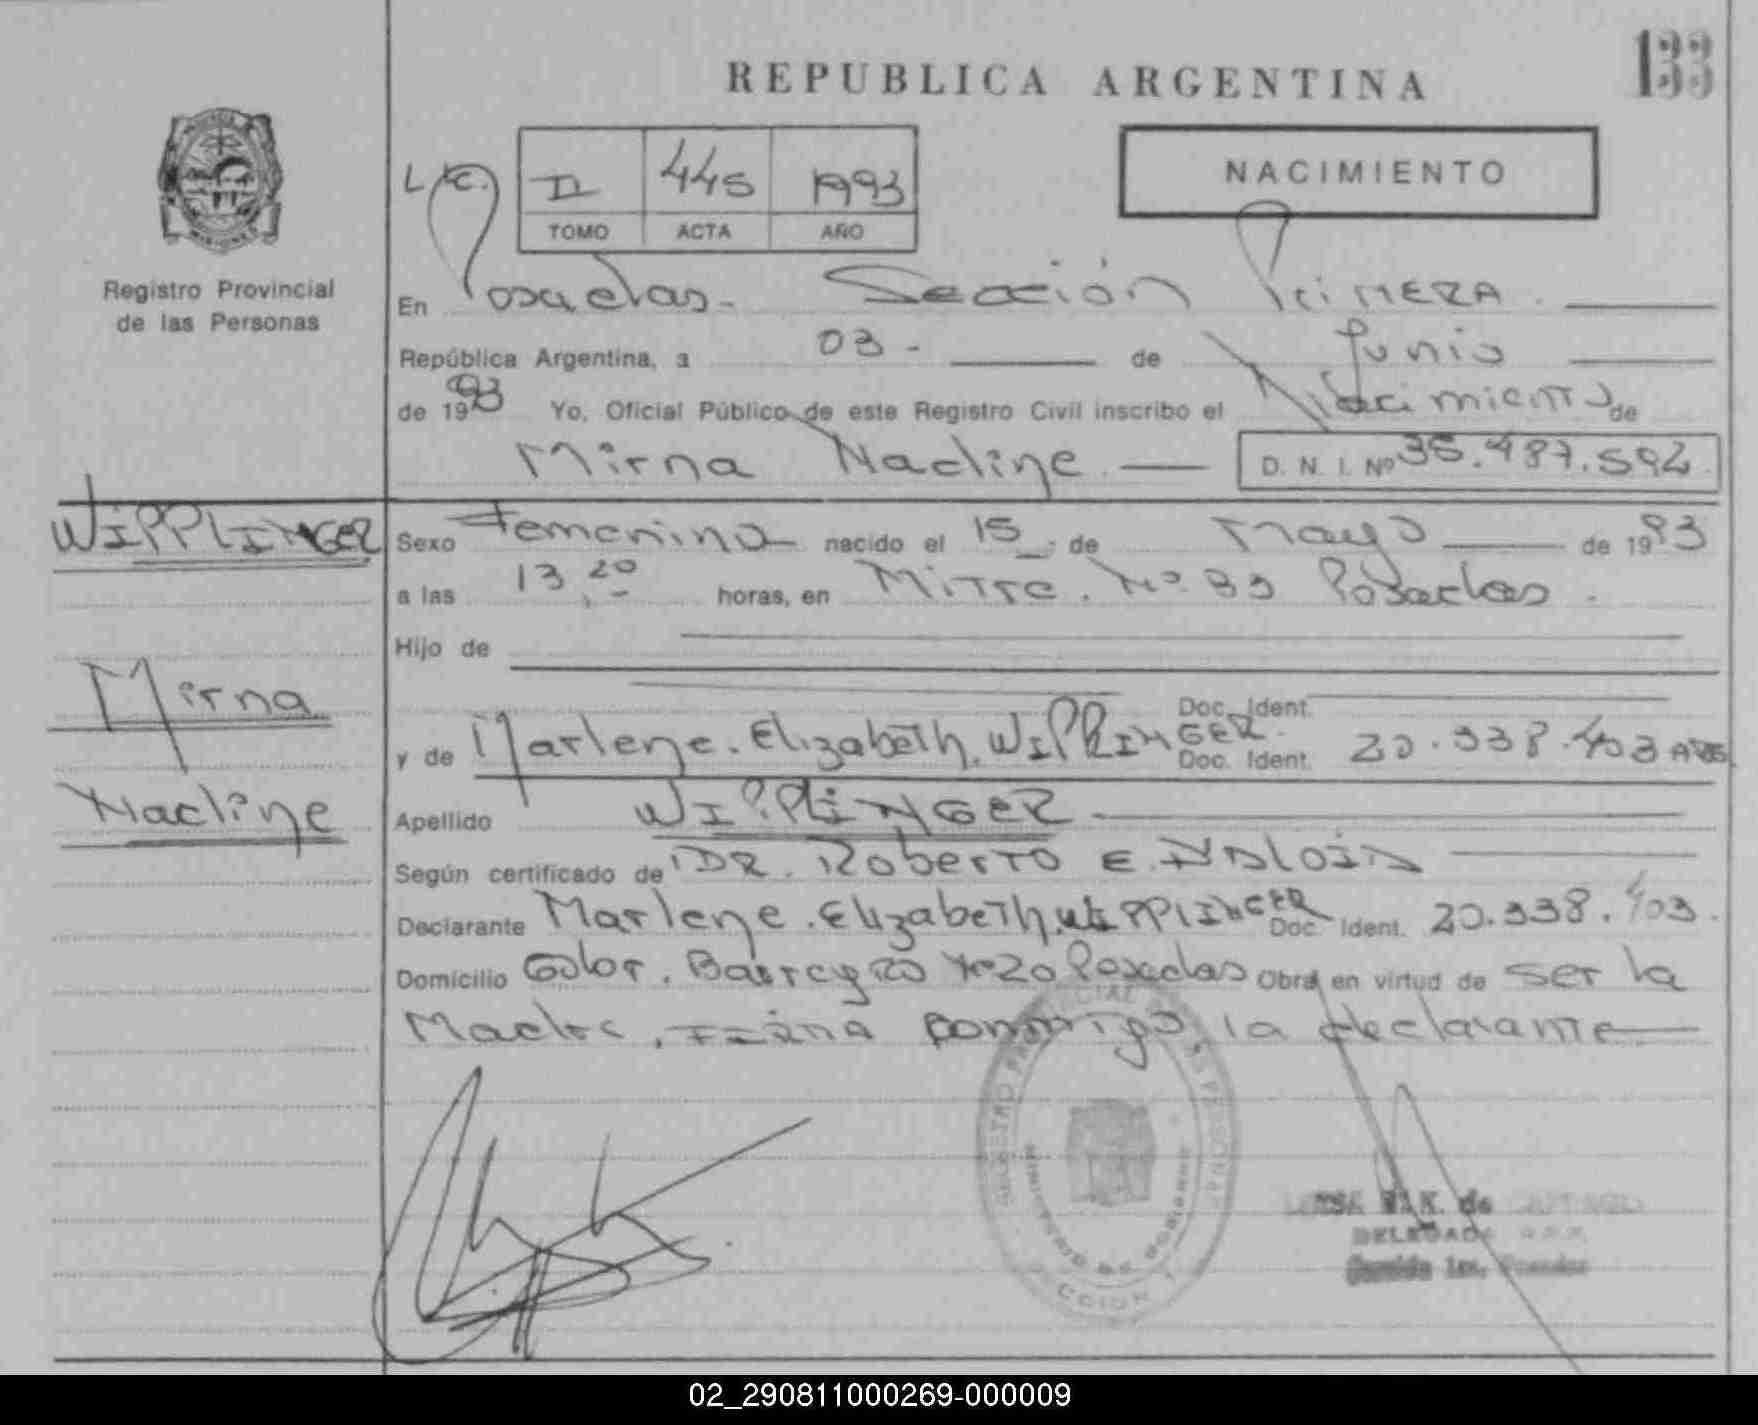 133
REPUBLICA ARGENTINA
II 445 1993
TOMO ACTA AÑO
NACIMIENTO
MISIONES
Registro Provincial
de las Personas
En Posadas - Sección Primera.
República Argentina, a 03 - de Junio
de 1993 Yo, Oficial Público de este Registro Civil inscribo el Nacimiento de
Mirna Nadine D. N. I. Nº 35.487.592
WIPPLINGER
Mirna
Nadine
Sexo Femenino nacido el 15 de Mayo de 1993
a las 13,20 horas, en Mitre. Nº 93 Posadas.
Hijo de
Doc. Ident.
y de Marlene. Elizabeth. WIPPLINGER. Doc. Ident. 20.338.403
Apellido WIPPLINGER
Según certificado de DR. Roberto E.
Declarante Marlene. Elizabeth. WIPPLINGER Doc. Ident. 20.338.403.
Domicilio Nº 20 Posadas Obra en virtud de ser la
Madre, Firma conmigo la declarante
REGISTRO PROVINCIAL DE LAS PERSONAS
MINISTERIO DE GOBIERNO
DELEGADA
02_290811000269-000009